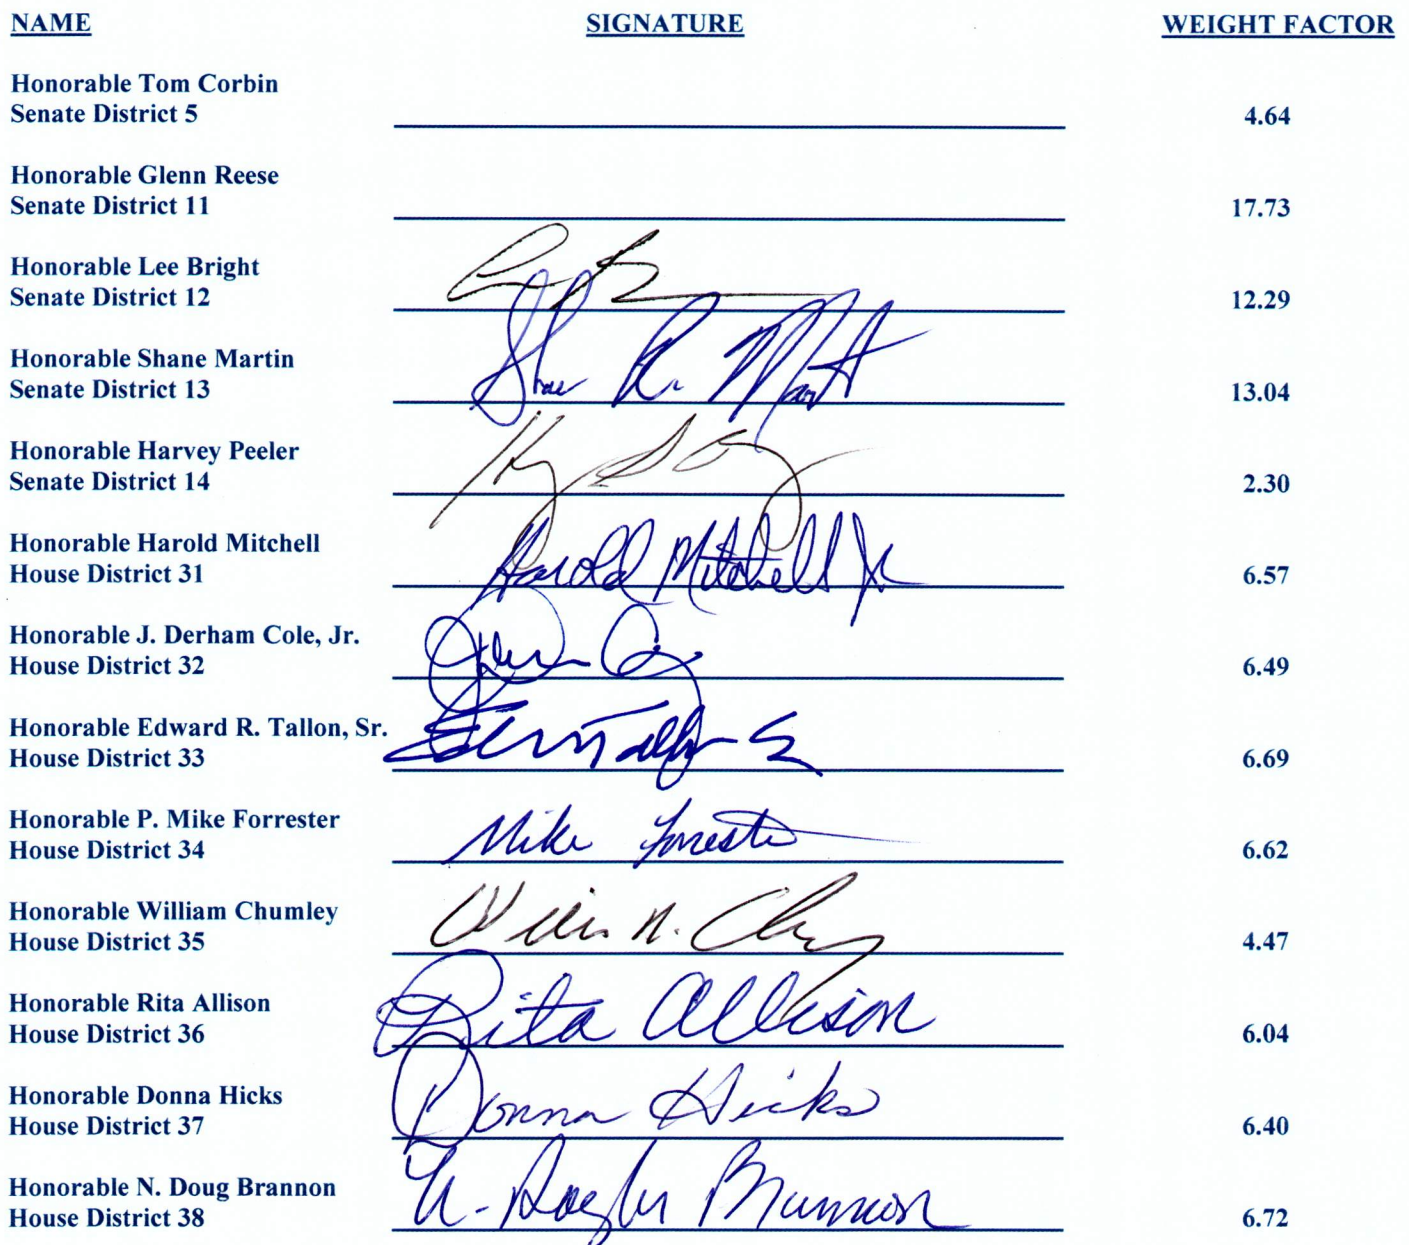 NAME SIGNATURE WEIGHT FACTOR
Honorable Tom Corbin
Senate District 5 4.64
Honorable Glenn Reese
Senate District 11 17.73
Honorable Lee Bright
Senate District 12 12.29
Honorable Shane Martin
Senate District 13 Shane R. Martin 13.04
Honorable Harvey Peeler
Senate District 14 2.30
Honorable Harold Mitchell
House District 31 Harold Mitchell Jr 6.57
Honorable J. Derham Cole, Jr.
House District 32 6.49
Honorable Edward R. Tallon, Sr.
House District 33 6.69
Honorable P. Mike Forrester
House District 34 Mike Forrester 6.62
Honorable William Chumley
House District 35 4.47
Honorable Rita Allison
House District 36 Rita Allison 6.04
Honorable Donna Hicks
House District 37 Donna Hicks 6.40
Honorable N. Doug Brannon
House District 38 N. Douglas Brannon 6.72